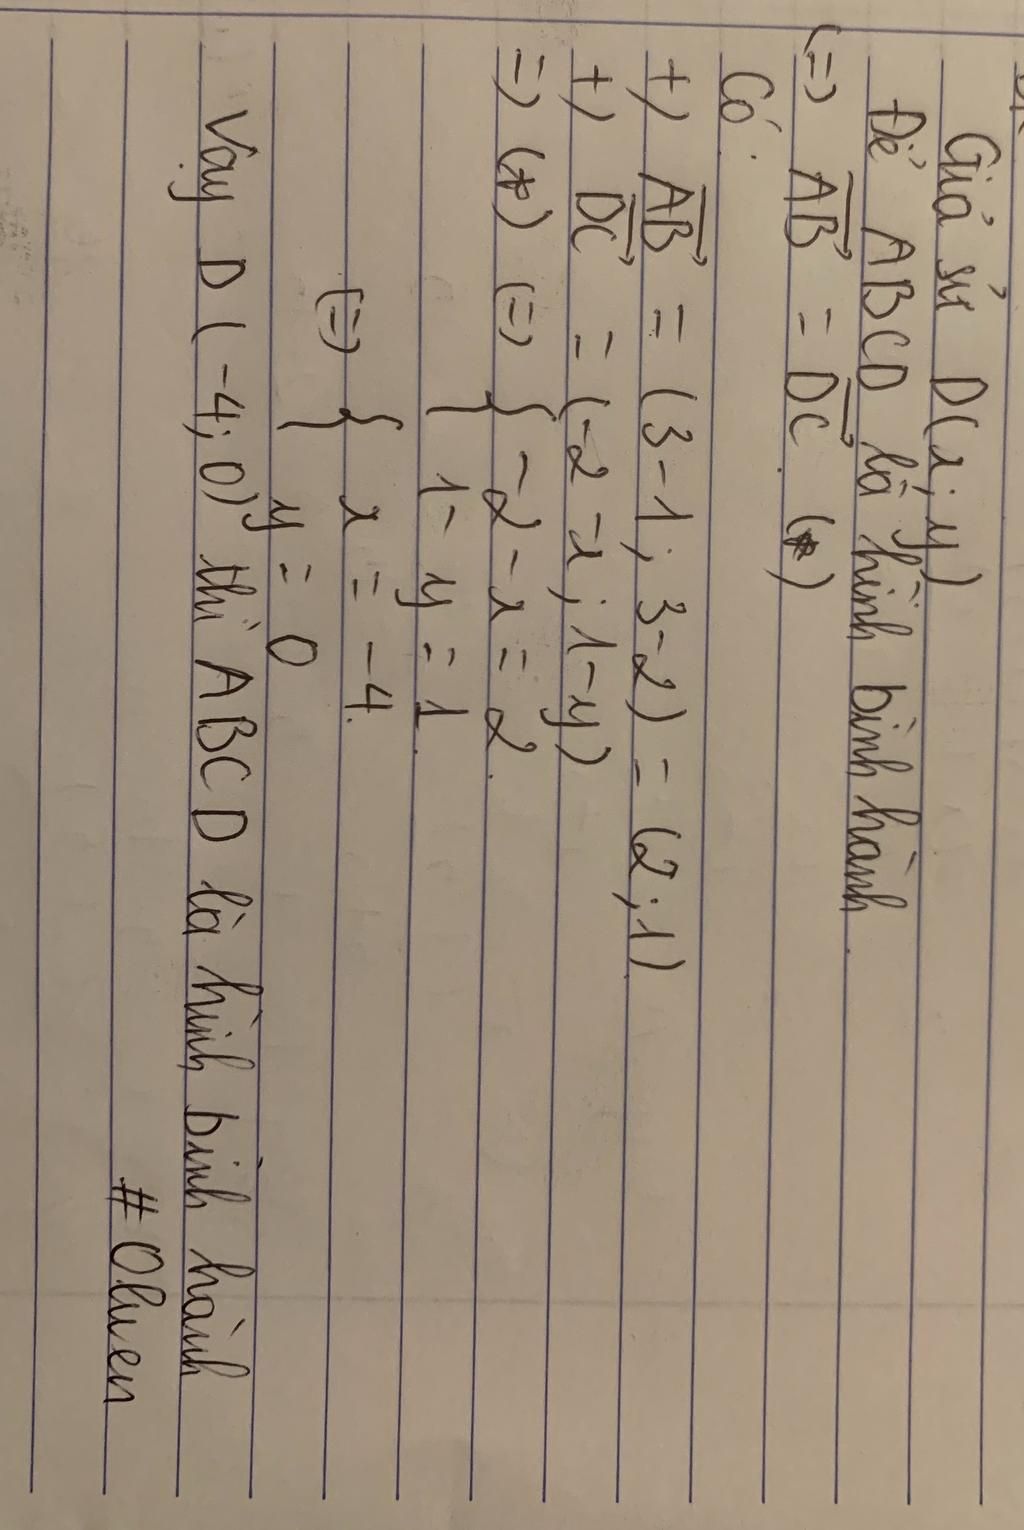 Giả sử D(x; y)
Để ABCD là hình bình hành.
(=) AB = DC (*)
Có:
+) AB = (3-1; 3-2) = (2;1)
+) DC = (-2-x; 1-y)
=) (*) (=) { -2-x = 2
1-y = 1
(=) { x = -4
y = 0
Vậy D(-4; 0) thì ABCD là hình bình hành